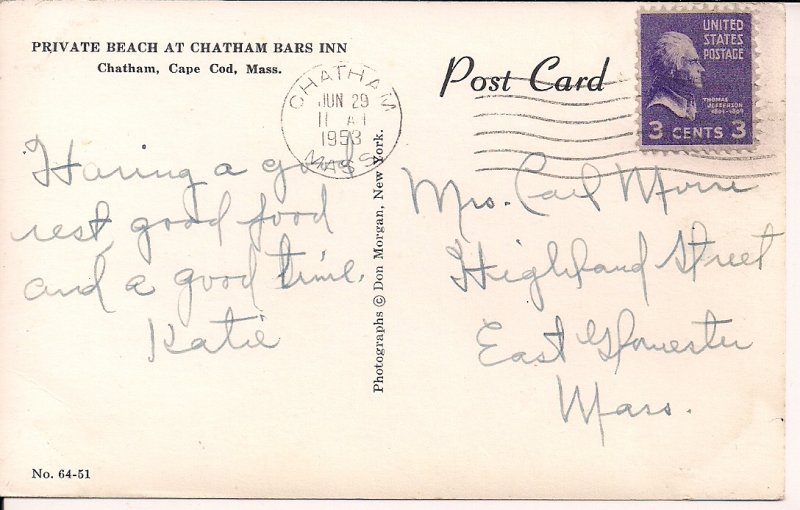 PRIVATE BEACH AT CHATHAM BARS INN
Chatham, Cape Cod, Mass.
Post Card
UNITED
STATES
POSTAGE
THOMAS
JEFFERSON
1801-1809
3 CENTS 3
CHATHAM
JUN 29
11 AM
1953
MASS
Having a good
rest, good food
and a good time.
Katie
Photographs © Don Morgan, New York.
Mrs. Carl
Highland Street
East Gloucester
Mass.
No. 64-51